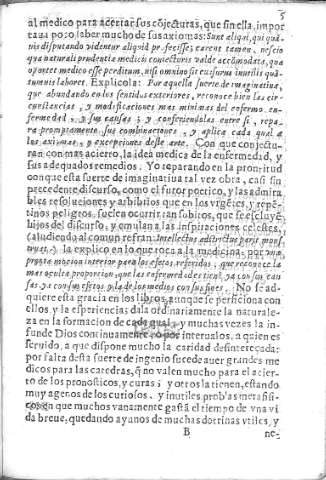 5
al medico para acertar sus cõjecturas, que sin ella, impor
tara poco saber mucho de sus axiomas: Sunt aliqui, qui quã-
vis disputando videntur aliquid profecisses carent tamen, nescio
qua naturali prudentia medicis coniecturis valde accõmodata, qua
oportet medico esse præditum, nisi omnino sit cursurus inutilis quã-
tumuis laboret. Explicola: Por aquella suerte de imaginatiua,
que abundando en los sentidos exteriores, reconoce bien las cir-
cunstancias, y modificaciones mas minimas del enfermo, en-
fermedad, y sus causas; y confiriendolas entre si, repa-
ra promptamente sus combinaciones, y aplica cada qual a
los axiomas, y excepciones deste arte. Con que conjectu-
ran con mas acierto, la idea medica de la enfermedad, y
sus adequados remedios. Yo reparando en la promtitud
con que esta suerte de imaginatiua tal vez obra, casi sin
precedente discurso, como el furor poetico, y las admira
bles resoluciones y arbibrios que en los vrgẽtes, y repẽ-
tinos peligros, suelen ocurrir tan subitos, que se escluyẽ
hijos del discurso, y emulan a las inspiraciones celestes,
(aludiendo al comun refran: Intellectus adstrictus parit mons-
truet.) la explico en lo que toca a la medicina, por vna
prompta nocion interior para los efectos referidos, que reconoce la
mas oculta proporcion, que las enfermedades tienẽ, ya con sus cau
sas, ya con sus efetos y la de los medios con sus fines. No se ad-
quiere esta gracia en los libros, aunque se perficiona con
ellos, y la esperiencia; dala ordinariamente la naturale-
za en la formacion de cada qual, y muchas vezes la in-
funde Dios continuamente, o por interualos, a quien es
seruido, a que dispone mucho la caridad desinteresada:
por falta desta suerte de ingenio sucede auer grandes me
dicos para las catedras, q̃ no valen mucho para el acier-
to de los pronosticos, y curas; y otros la tienen, estando
muy agenos de los curiosos, y inutiles prob'as metafisi-
cos en que muchos vanamente gastã el tiempo de vna vi
da breue, quedando ayunos de muchas dotrinas vtiles, y
B
ne-